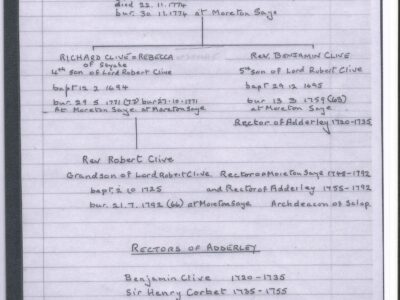 died 22.11.1774
bur. 30.11.1774 at Moreton Saye
RICHARD CLIVE = REBECCA
of Styche
4th son of Lord Robert Clive
bapt 12 2 1694
bur. 29 5 1771 (77) bur 27.10.1771
At Moreton Saye. at Moreton Saye
REV. BENJAMIN CLIVE
5th son of Lord Robert Clive
bapt 29 12 1695
bur 13 3 1759 (63)
at Moreton Saye
Rector of Adderley 1720-1735
Rev Robert Clive
Grandson of Lord Robert Clive Rector of Moreton Saye 1748-1792
bapt. 2 10 1725 and Rector of Adderley 1755-1792
bur. 21.7.1792 (66) at Moreton Saye Archdeacon of Salop
RECTORS OF ADDERLEY
Benjamin Clive 1720-1735
Sir Henry Corbet 1735-1755